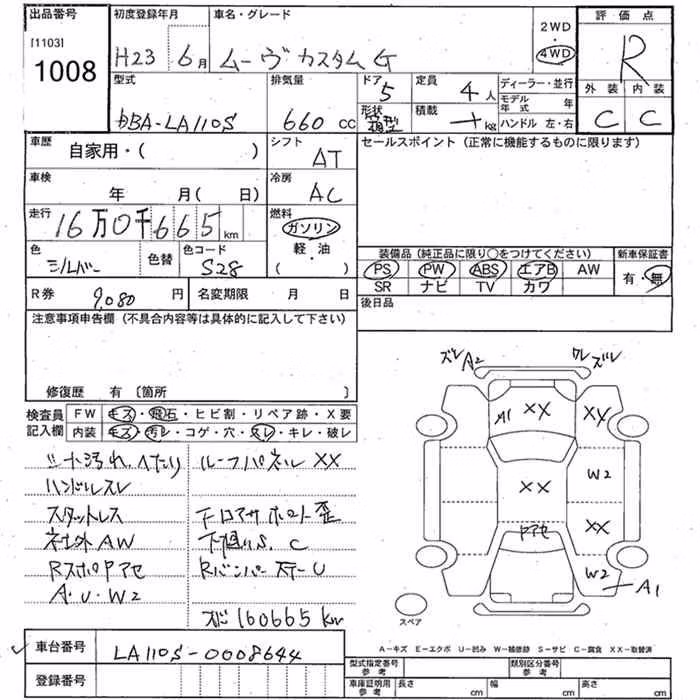 出品番号 初度登録年月 車名・グレード 2WD 評価点
[1103] H23 6月 ムーヴカスタムG 4WD R
1008 型式 排気量 ドア 定員 ディーラー・並行 外装 内装
5 4人 モデル年式 年
DBA-LA110S 660cc 形状 箱型 積載 kg ハンドル 左・右 C C
車歴 自家用・( ) シフト AT セールスポイント(正常に機能するものに限ります)
車検 年 月(日) 冷房 AC
走行 16万0千665km 燃料 ガソリン 軽・油 ( ・ )
色 シルバー 色替 色コード S28 装備品(純正品に限り○をつけてください) 新車保証書
PS PW ABS エアB AW 有・無
SR ナビ TV カワ
R券 9,080円 名変期限 月 日 後日品
注意事項申告欄(不具合内容等は具体的に記入して下さい)
修復歴 有〔箇所 〕
検査員記入欄 FW キズ・飛石・ヒビ割・リペア跡・X要
内装 キズ・汚レ・コゲ・穴・スレ・キレ・破レ
シート汚れ、へたり ルーフパネルXX
ハンドルスレ
スタットレス
社外AW 下廻りS.C
RスポPアセ RバンパーステーU
A・U・W2
160665km
ズレ A2 ワレ ズレ
A1 XX XX
W2
XX
XX
Pアセ
W2
A1
スペア
A-キズ E-エクボ U-凹み W-補修跡 S-サビ C-腐食 XX-取替済
車台番号 LA110S-0008644
登録番号
型式指定番号 参考 類別区分番号 参考
車庫証明用 参考 長さ cm 幅 cm 高さ cm